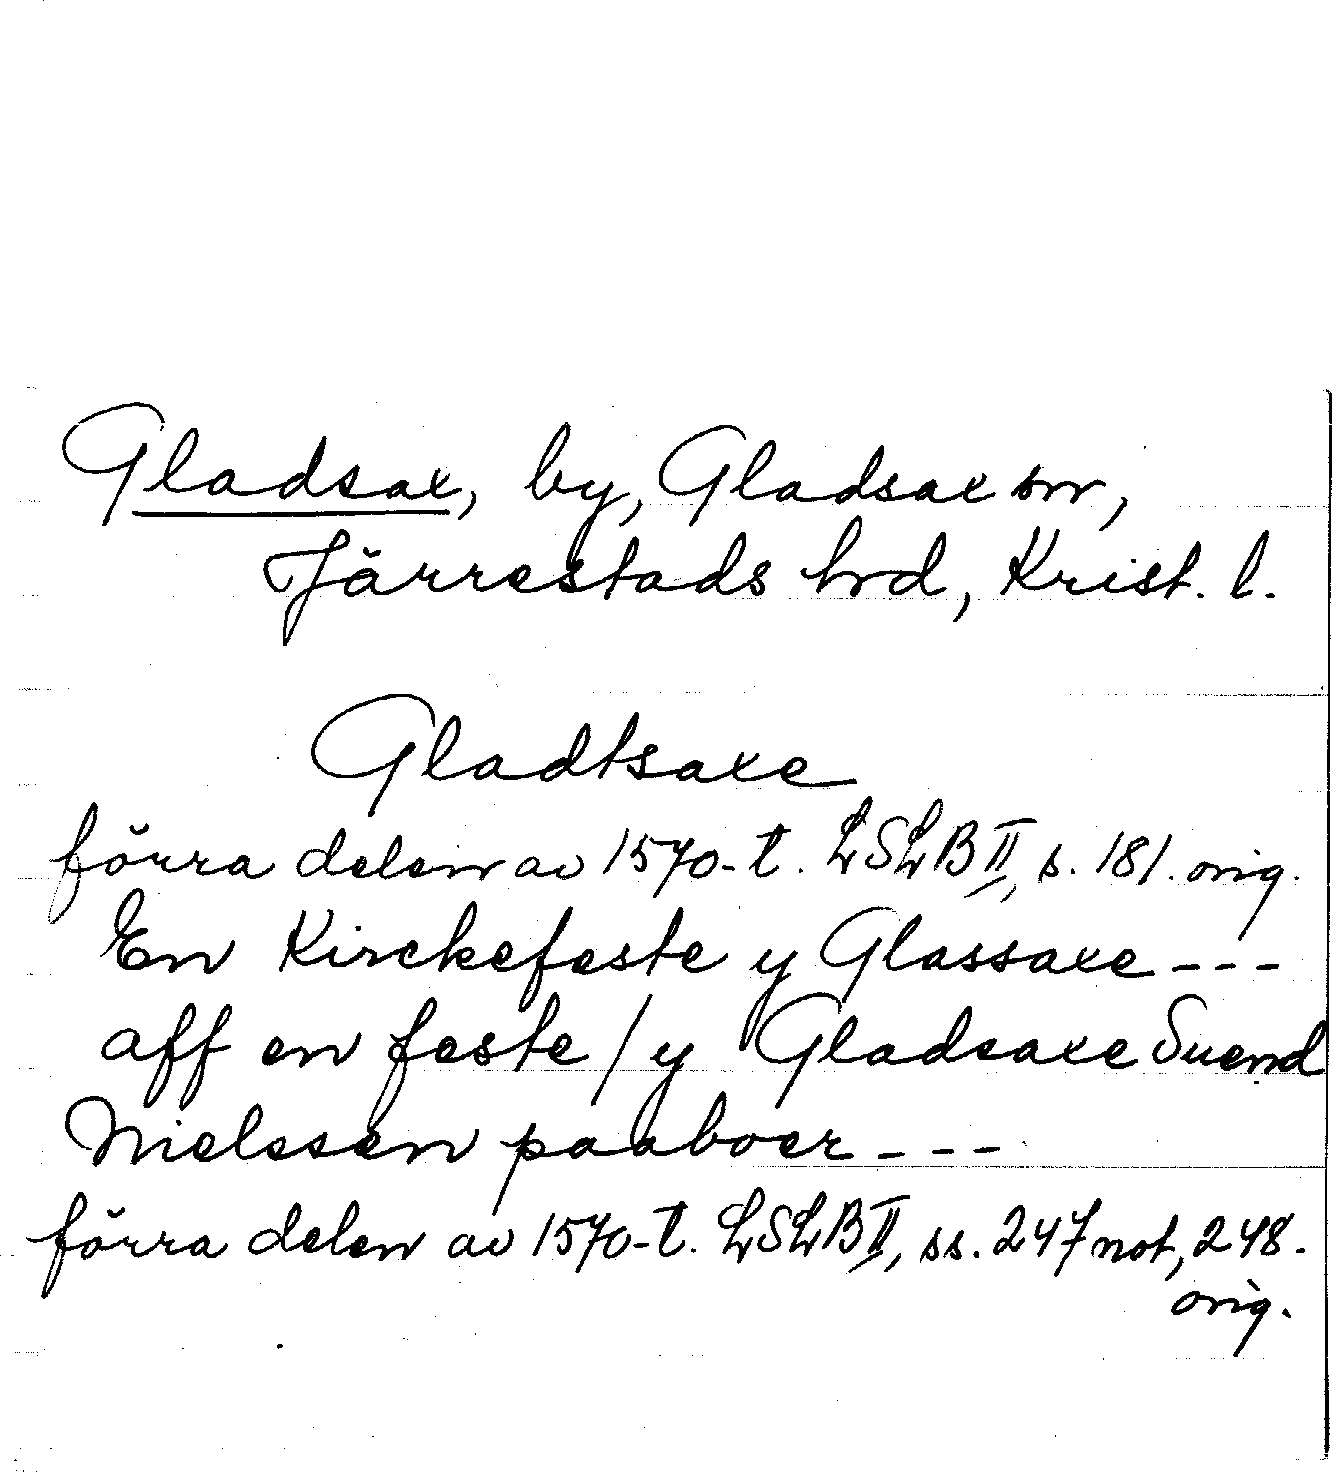 Gladsax, by, Gladsax sn,
Järrestads hrd, Krist. l.
Gladtsaxe
förra delen av 1570-t. LSLB II, s. 181. orig.
En Kirckefeste y Glassaxe ---
aff en feste / y Gladsaxe Suend
Nielssen paaboer ---
förra delen av 1570-t. LSLB II, ss. 247 not, 248.
orig.